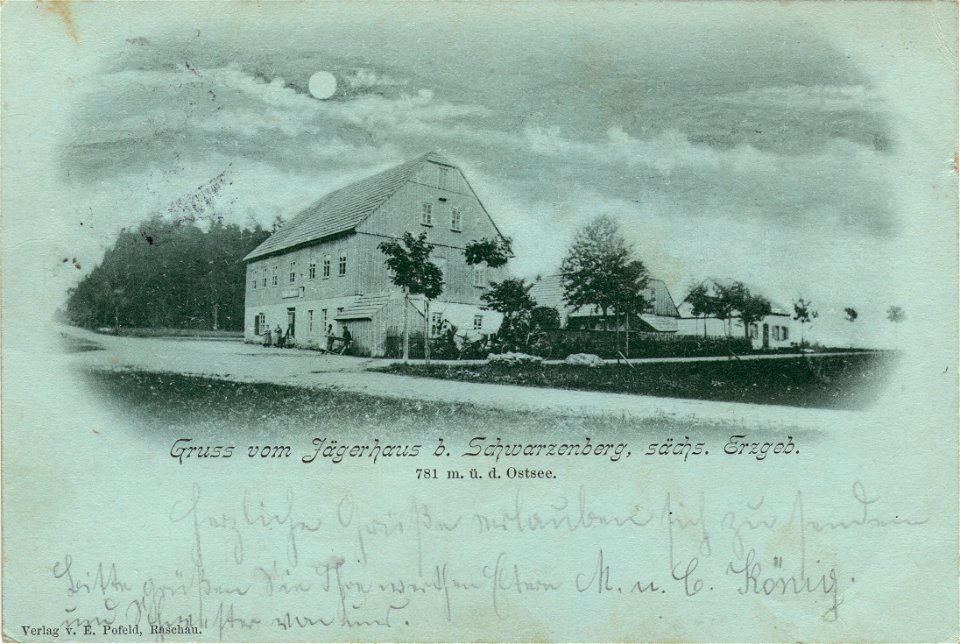 Gruss vom Jägerhaus b. Schwarzenberg, sächs. Erzgeb.
781 m. ü. d. Ostsee.
Herzliche Grüße erlauben sich zu senden
M. u. C. König.
Bitte grüßen Sie Ihre werthen Eltern
und Schwester von uns.
Verlag v. E. Pofeld, Raschau.